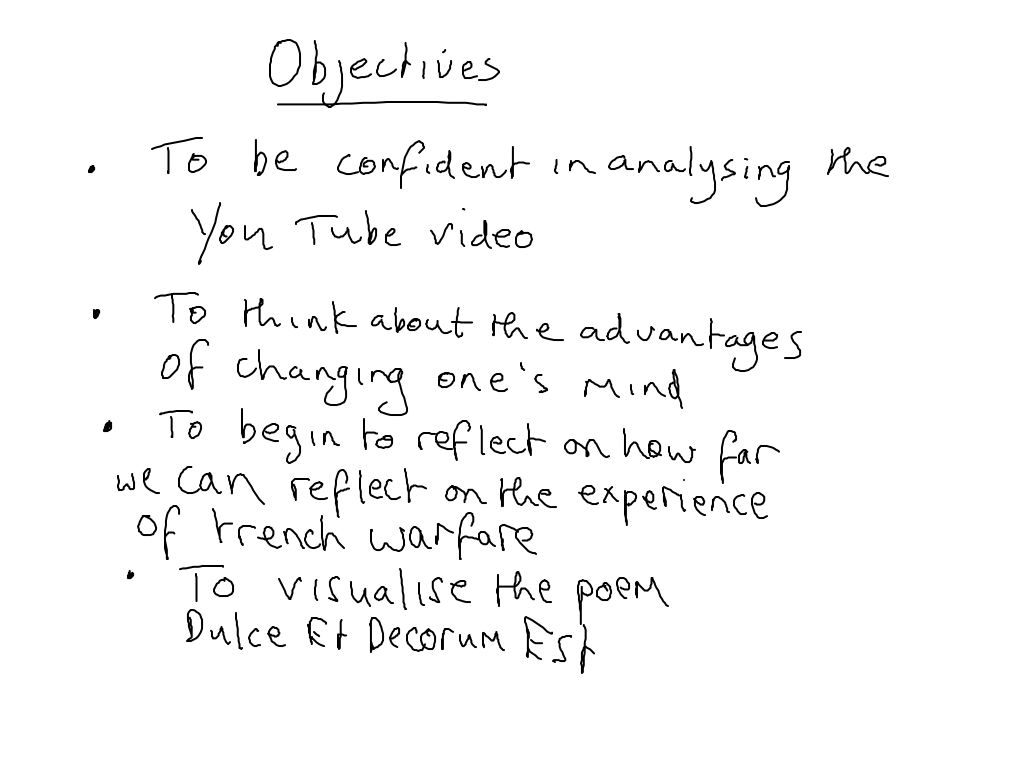 Objectives
• To be confident in analysing the
You Tube video
• To think about the advantages
of changing one's mind
• To begin to reflect on how far
we can reflect on the experience
of trench warfare
• To visualise the poem
Dulce Et Decorum Est